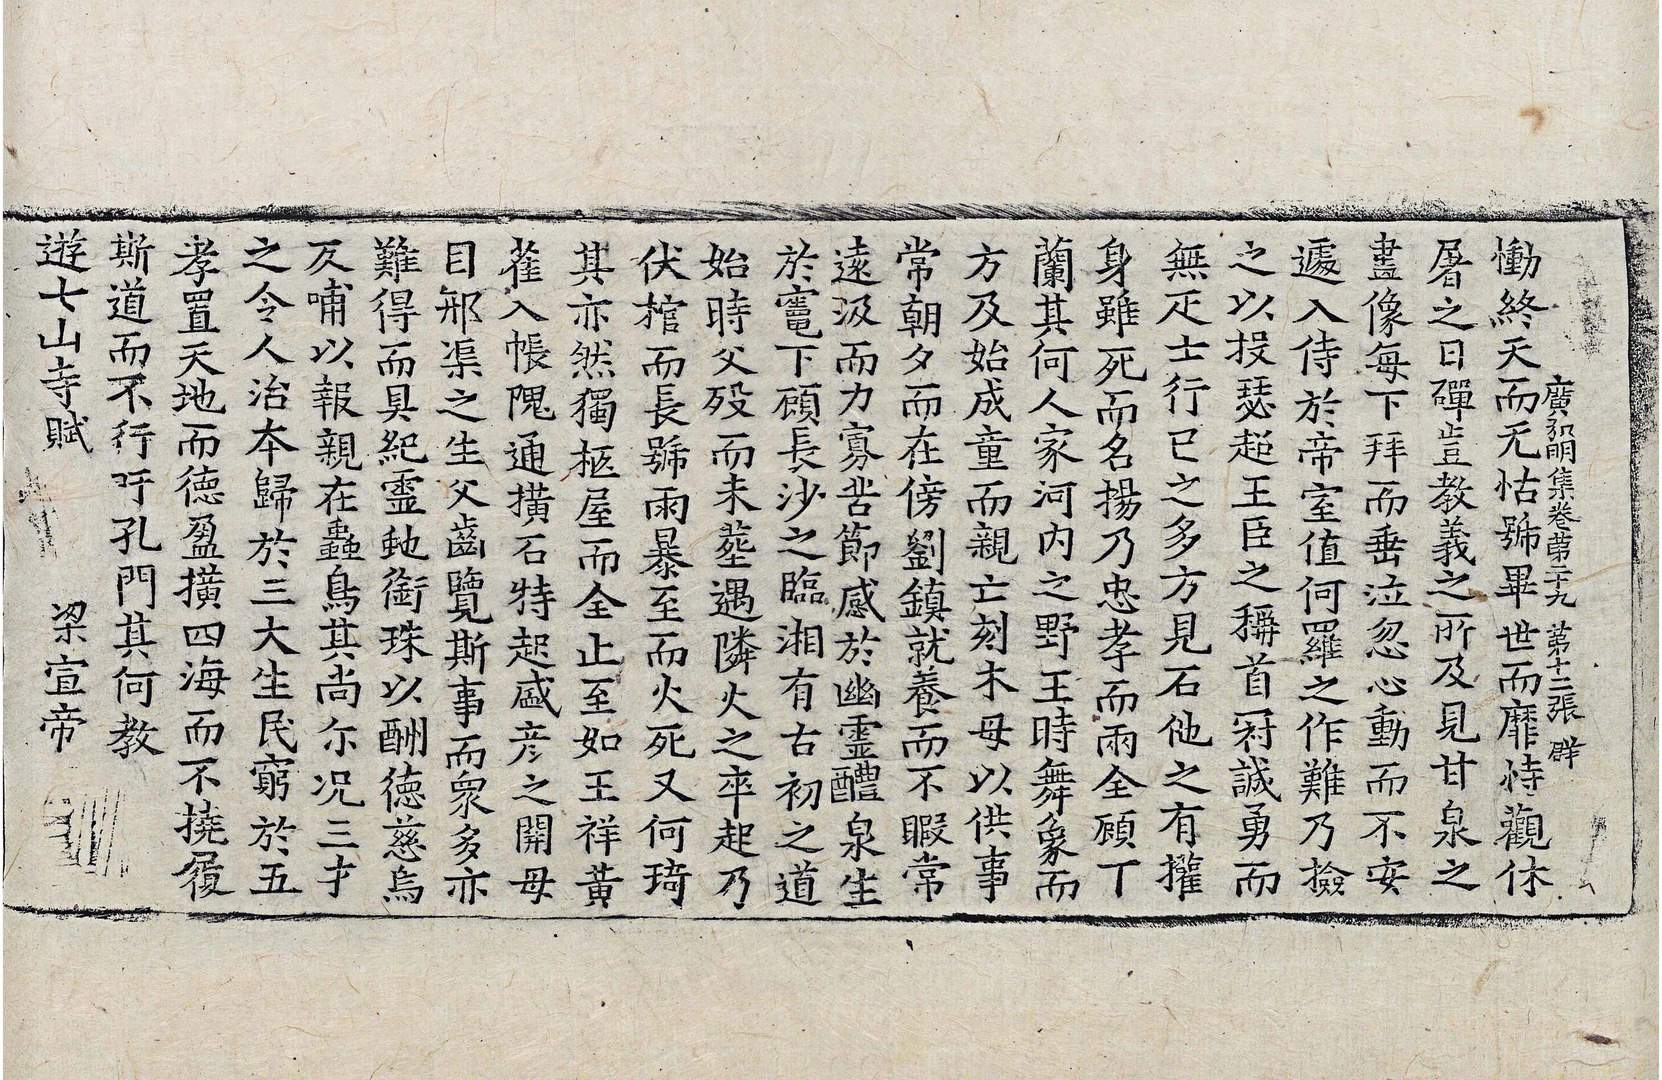 廣弘明集卷第二十九 第十二張 群
慟終天而无怙號畢世而靡恃觀休
屠之日磾豈教義之所及見甘泉之
畫像每下拜而垂泣忽心動而不安
遽入侍於帝室值何羅之作難乃撿
之以投瑟超王臣之稱首冠誠勇而
無疋士行已之多方見石他之有攉
身雖死而名揚乃忠孝而兩全顧丁
蘭其何人家河內之野王時舞象而
方及始成童而親亡刻木母以供事
常朝夕而在傍劉鎮就養而不暇常
遠汲而力寡苦節感於幽靈醴泉生
於竈下碩長沙之臨湘有古初之道
始時父歿而未葬遇隣火之卒起乃
伏棺而長號雨暴至而火死又何琦
其亦然獨柩屋而全止至如王祥黃
雀入帳隗通撗石特起盛彥之開母
目邢渠之生父齒覽斯事而衆多亦
難得而具紀靈虵銜珠以酬德慈烏
反哺以報親在蟲鳥其尚尓况三才
之令人治本歸於三大生民窮於五
孝置天地而德盈撗四海而不撓履
斯道而不行吁孔門其何教
遊七山寺賦 梁宣帝